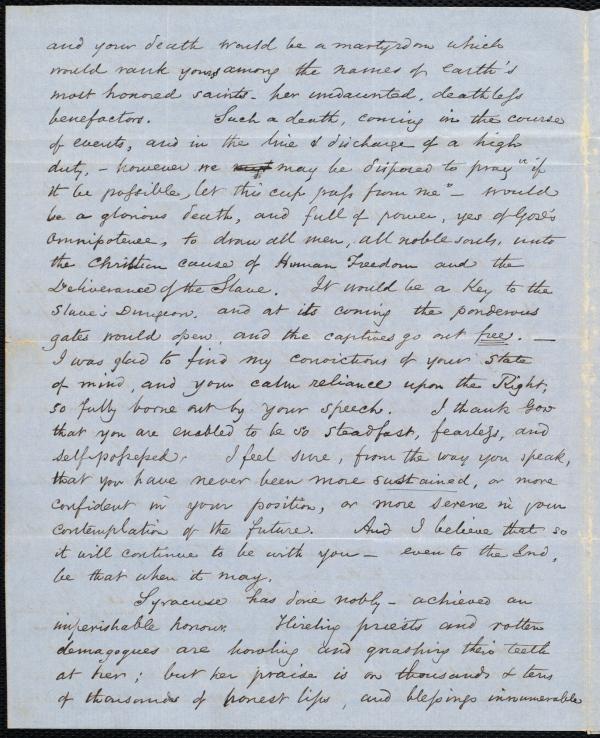 and your death would be a martyrdom which
would rank yours among the names of earth's
most honored saints - her undaunted, deathless
benefactors. Such a death, coming in the course
of events, and in the line & discharge of a high
duty, - however we may be disposed to pray "if
it be possible, let this cup pass from me" - would
be a glorious death, and full of power, yes of God's
Omnipotence, to draw all men, all noble souls, unto
the Christian cause of Human Freedom and the
Deliverance of the Slave. It would be a Key to the
Slave's Dungeon, and at its coming the ponderous
gates would open, and the captives go out free. —
I was glad to find my convictions of your state
of mind, and your calm reliance upon the Right,
so fully borne out by your speech. I thank God
that you are enabled to be so steadfast, fearless, and
self-possessed. I feel sure, from the way you speak,
that you have never been more sustained, or more
confident in your position, or more serene in your
contemplation of the future. And I believe that so
it will continue to be with you — even to the End,
be that when it may.
Syracuse has done nobly - achieved an
imperishable honour. Hireling priests and rotten
demagogues are howling and gnashing their teeth
at her; but her praise is on thousands & tens
of thousands of honest lips, and blessings innumerable